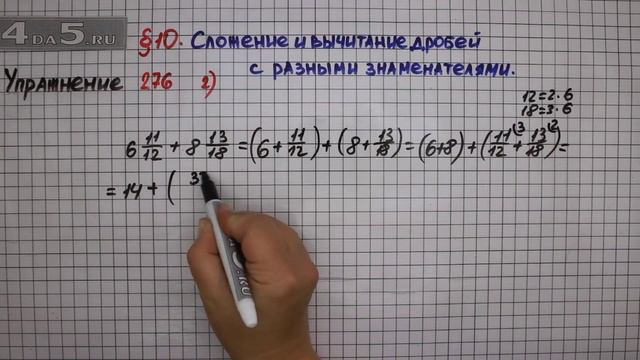 4DA5.RU
§10. Сложение и вычитание дробей
с разными знаменателями.
Упражнение 276 2)
12=2·6
18=3·6
6 11/12 + 8 13/18 = (6 + 11/12) + (8 + 13/18) = (6+8) + (11/12 (3 + 13/18 (2) =
= 14 + ( 3